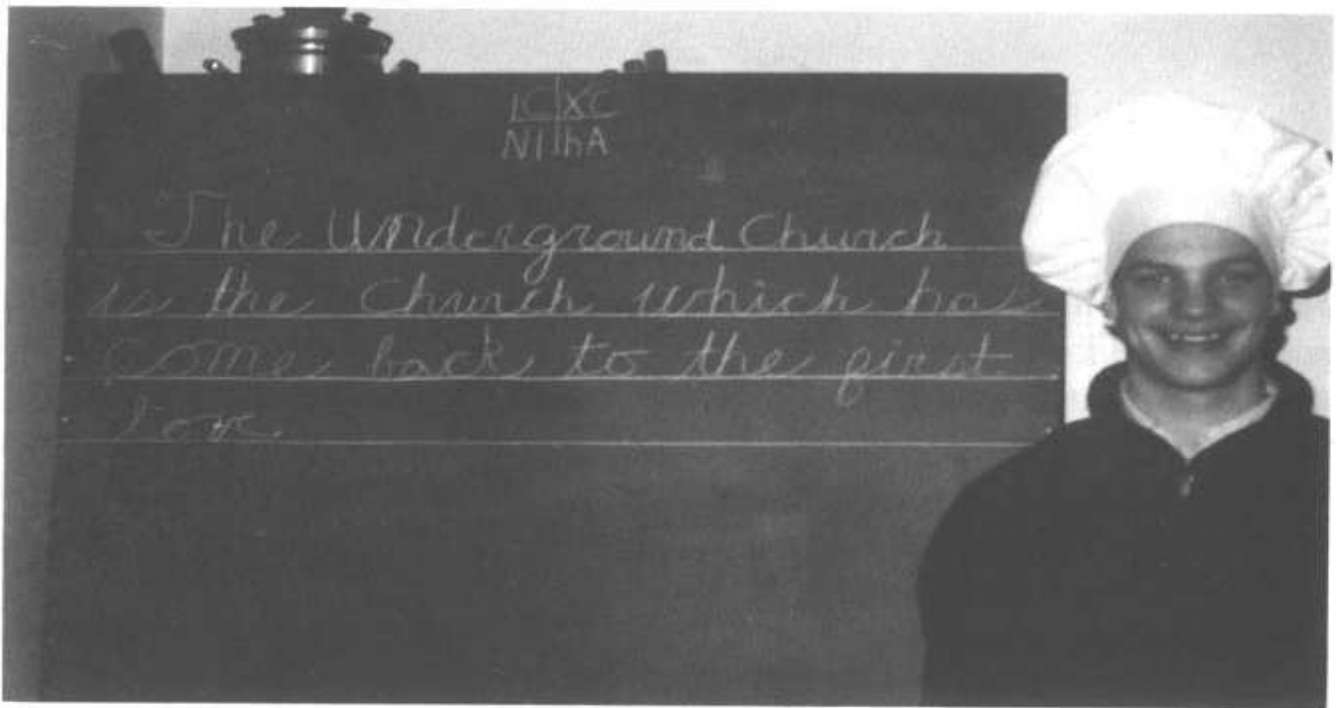 IC XC
NI hA
The Underground Church
is the Church which has
come back to the first
love.